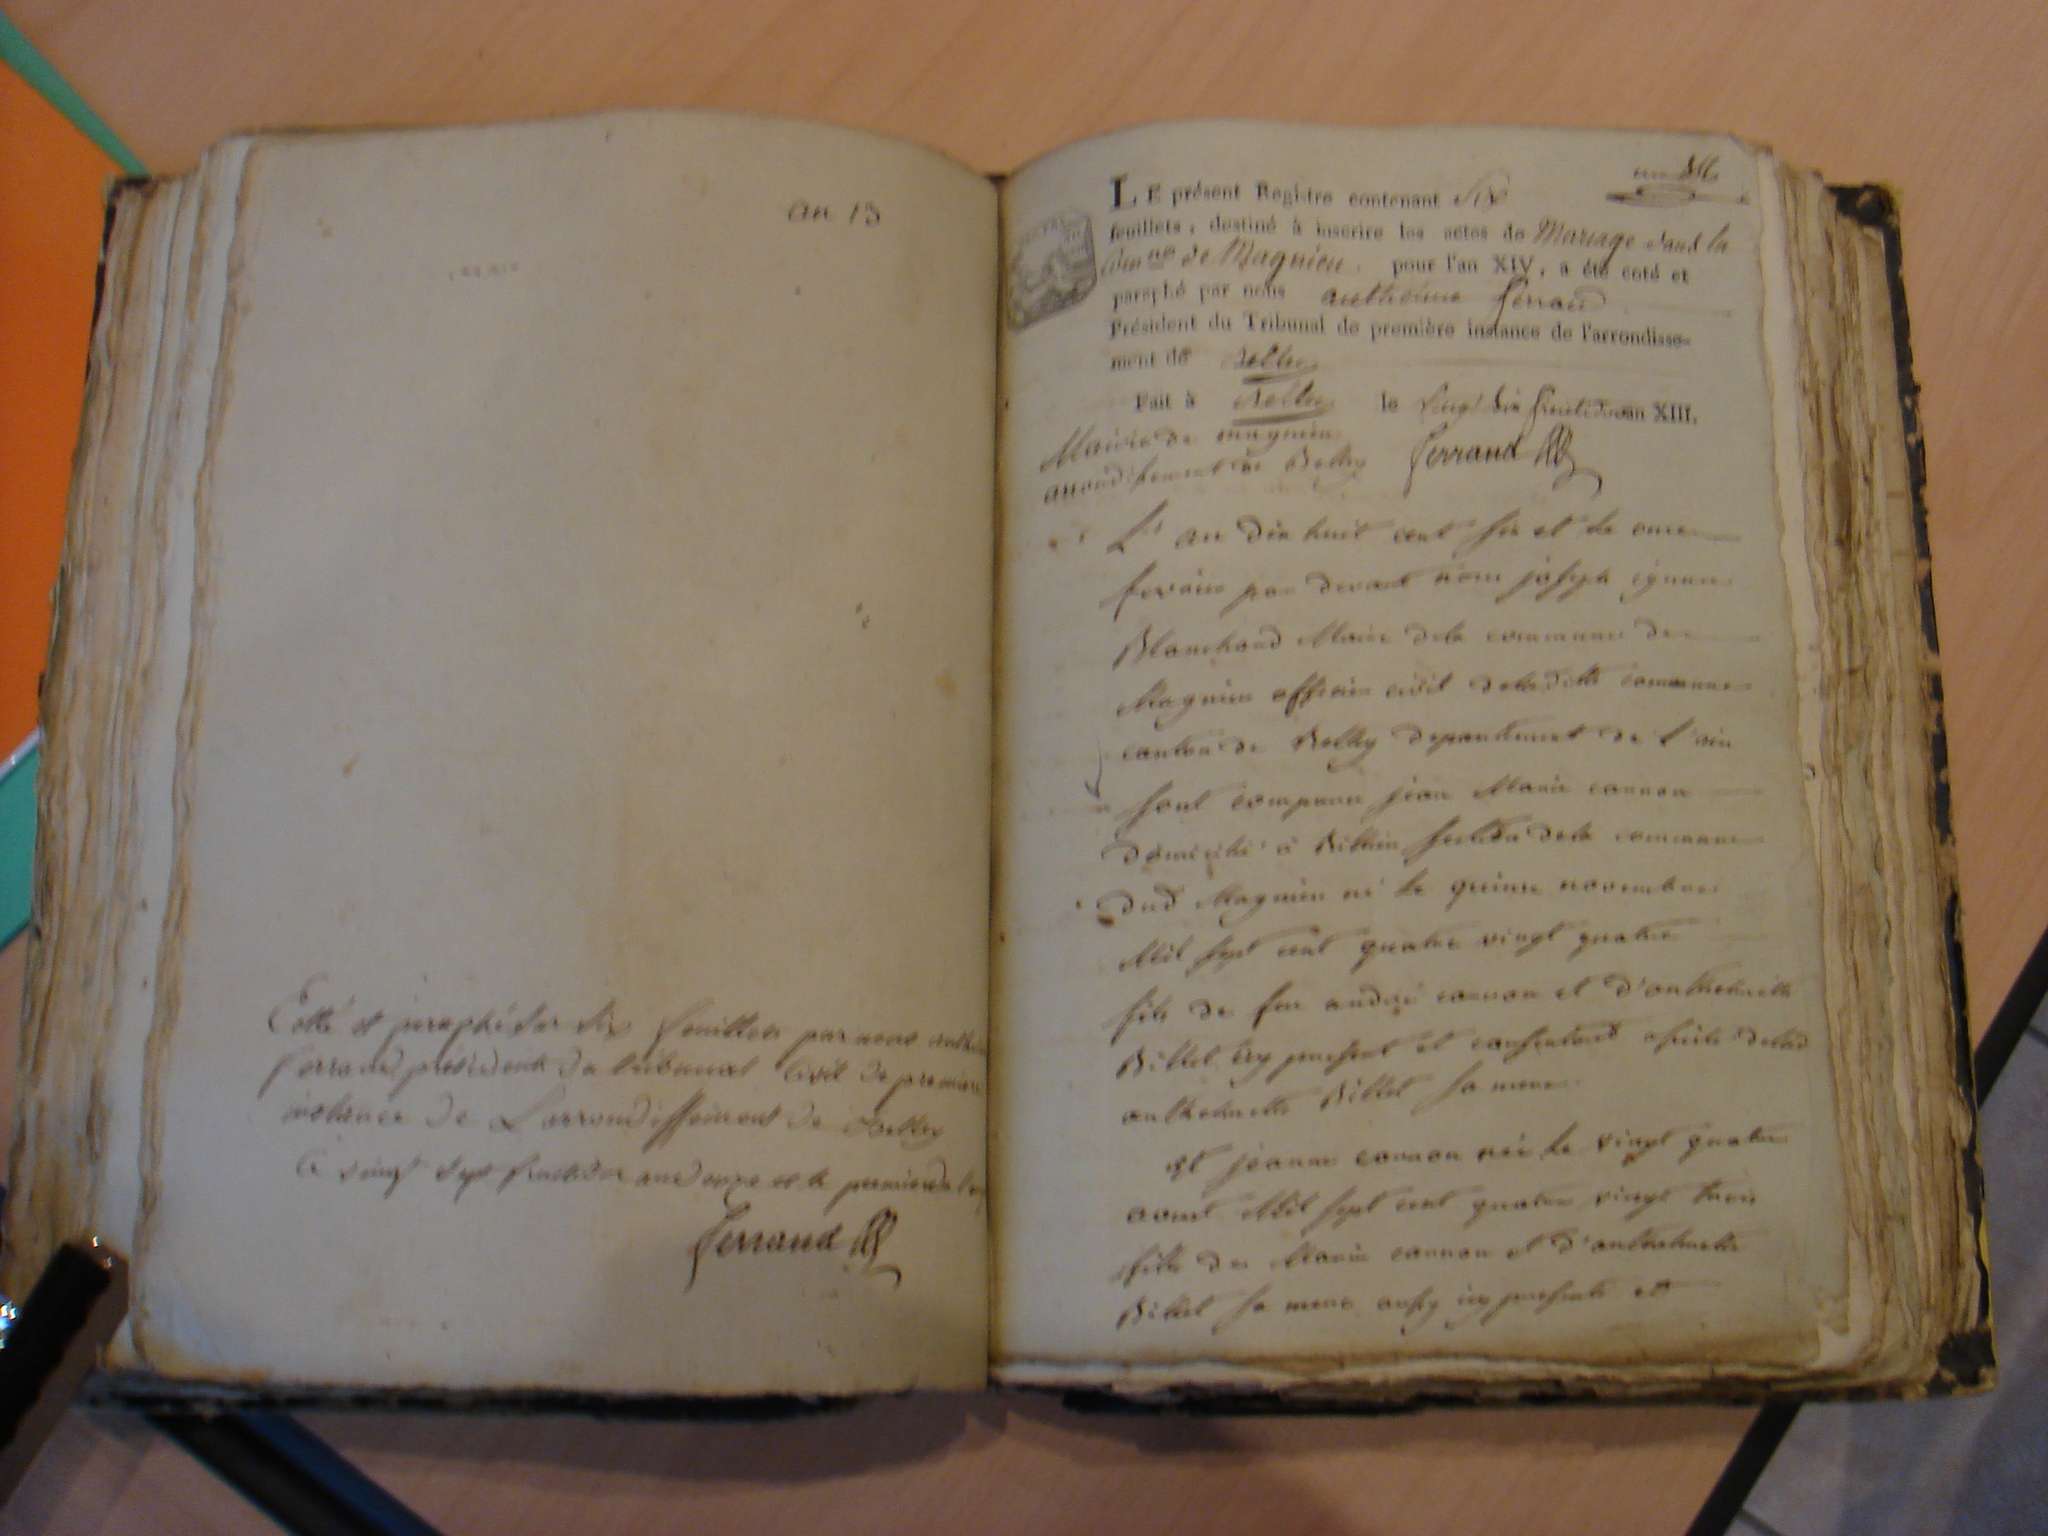 an 13
Cotté et paraphé sur six feuillets par nous anthelme
ferrand président du tribunal civil de premiere
instance de L'arrondissement de Belley
le vingt sept fructidor an
Ferrand
an 14
LE présent Registre contenant Six
feuillets, destiné à inscrire les actes de Mariage dans la
Comne de Magnieu. pour l'an XIV, a été coté et
paraphé par nous anthelme ferrand
Président du Tribunal de première instance de l'arrondisse-
ment de Belley
Fait à Belley le vingt six fructidor an XIII.
Mairie de magnieu
arrondissement de Belley Ferrand
L'an dix huit cent six et le onze
fevrier par devant nous joseph ignace
Blanchard Maire dela commune de
Magnieu officier civil deladitte commune
canton de Belley departement de l'ain
sont comparu jean Marie connon
domicilié a Billieu section dela commune
dud Magnieu né le quinze novembre
Mil sept cent quatre vingt quatre
fils de feu andré connon et d'anthelmette
Billiet icy present et consentant delad
anthelmette Billiet sa mere
et jeanne connon née le vingt quatre
aoust Mil sept cent quatre vingt trois
fille de Marie connon et d'anthelmette
Billiet sa mere aussy icy presente et